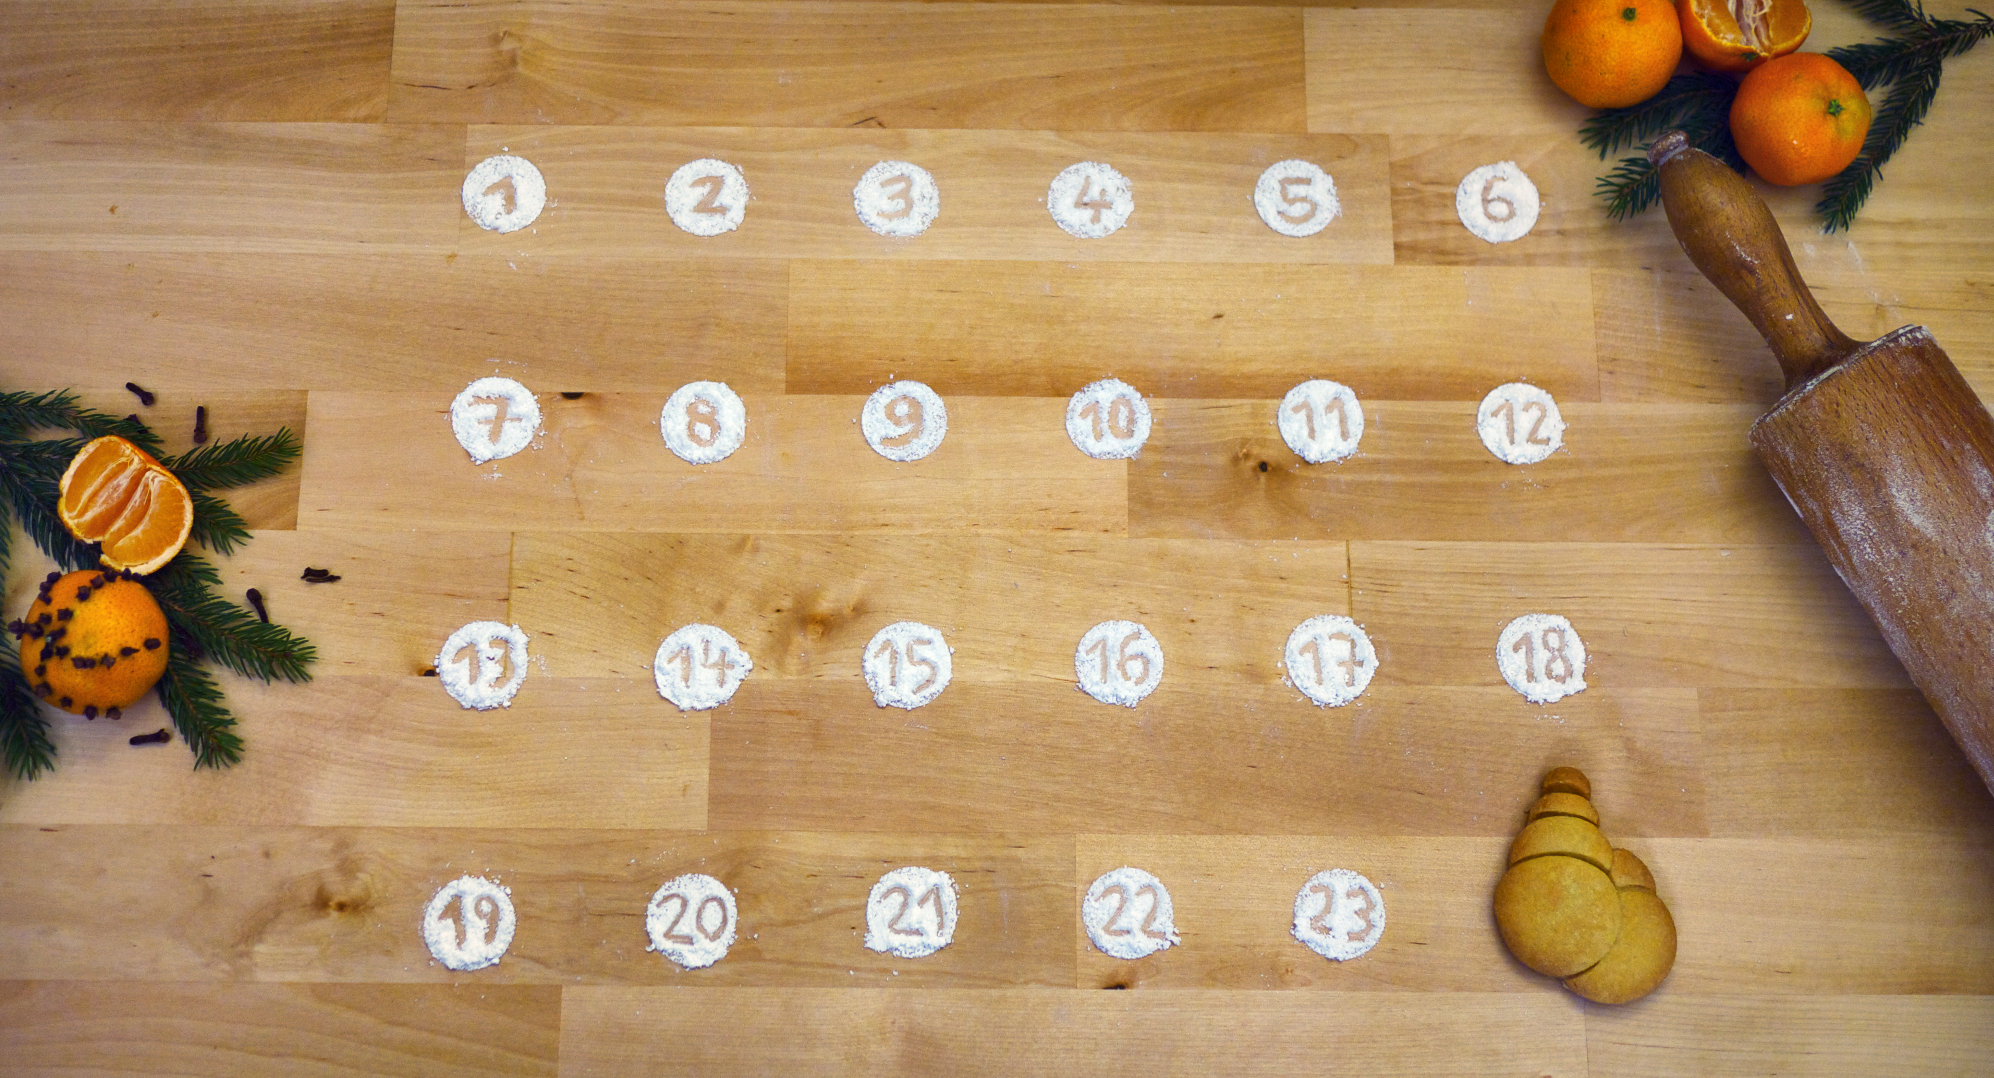 1 2 3 4 5 6
7 8 9 10 11 12
13 14 15 16 17 18
19 20 21 22 23